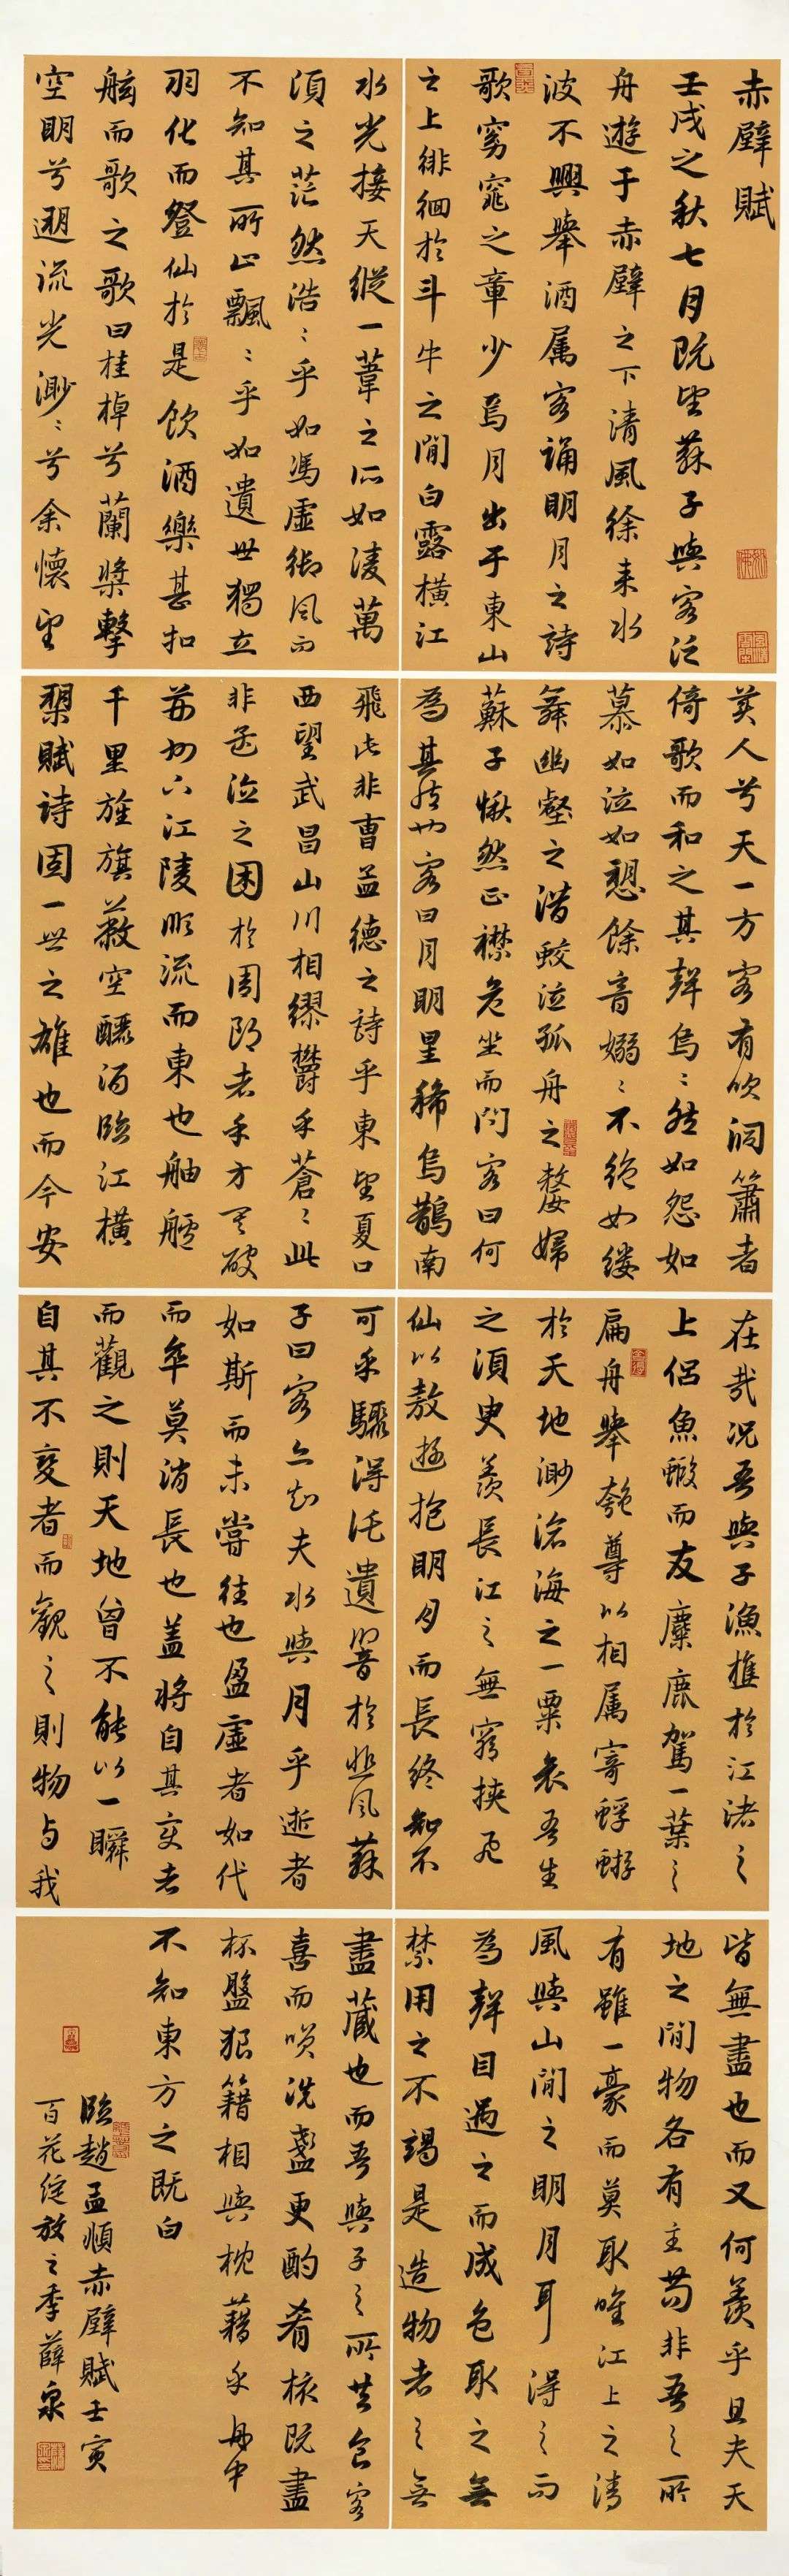 赤壁賦
壬戌之秋七月既望蘇子與客泛
舟遊于赤壁之下清風徐来水
波不興舉酒属客誦明月之詩
歌窈窕之章少焉月出于東山
之上徘徊於斗牛之間白露橫江
水光接天縱一葦之所如淩萬
頃之茫然浩〻乎如馮虛御風而
不知其所止飄〻乎如遺世獨立
羽化而登仙於是飲酒樂甚扣
舷而歌之歌曰桂棹兮蘭槳擊
空明兮遡流光渺〻兮余懷望
美人兮天一方客有吹洞簫者
倚歌而和之其聲烏〻然如怨如
慕如泣如愬餘音嫋〻不絕如縷
舞幽壑之潛蛟泣孤舟之嫠婦
蘇子愀然正襟危坐而問客曰何
為其然也客曰月明星稀烏鵲南
飛此非曹孟德之詩乎東望夏口
西望武昌山川相繆鬱乎蒼〻此
非孟德之困於周郎者乎方其破
荊州下江陵順流而東也舳艫
千里旌旗蔽空釃酒臨江橫
槊賦詩固一世之雄也而今安
在哉況吾與子漁樵於江渚之
上侶魚蝦而友麋鹿駕一葉之
扁舟舉匏尊以相属寄蜉蝣
於天地渺滄海之一粟哀吾生
之須臾羨長江之無窮挾飛
仙以敖遊抱明月而長終知不
可乎驟得託遺響於悲風蘇
子曰客亦知夫水與月乎逝者
如斯而未嘗往也盈虛者如代
而卒莫消長也蓋將自其變者
而觀之則天地曾不能以一瞬
自其不變者而觀之則物与我
皆無盡也而又何羨乎且夫天
地之間物各有主苟非吾之所
有雖一豪而莫取唯江上之清
風與山間之明月耳得之而
為聲目遇之而成色取之無
禁用之不竭是造物者之無
盡藏也而吾與子之所共食客
喜而咲洗盞更酌肴核既盡
杯盤狼籍相與枕藉乎舟中
不知東方之既白
臨趙孟頫赤壁賦壬寅
百花綻放之季薛泉